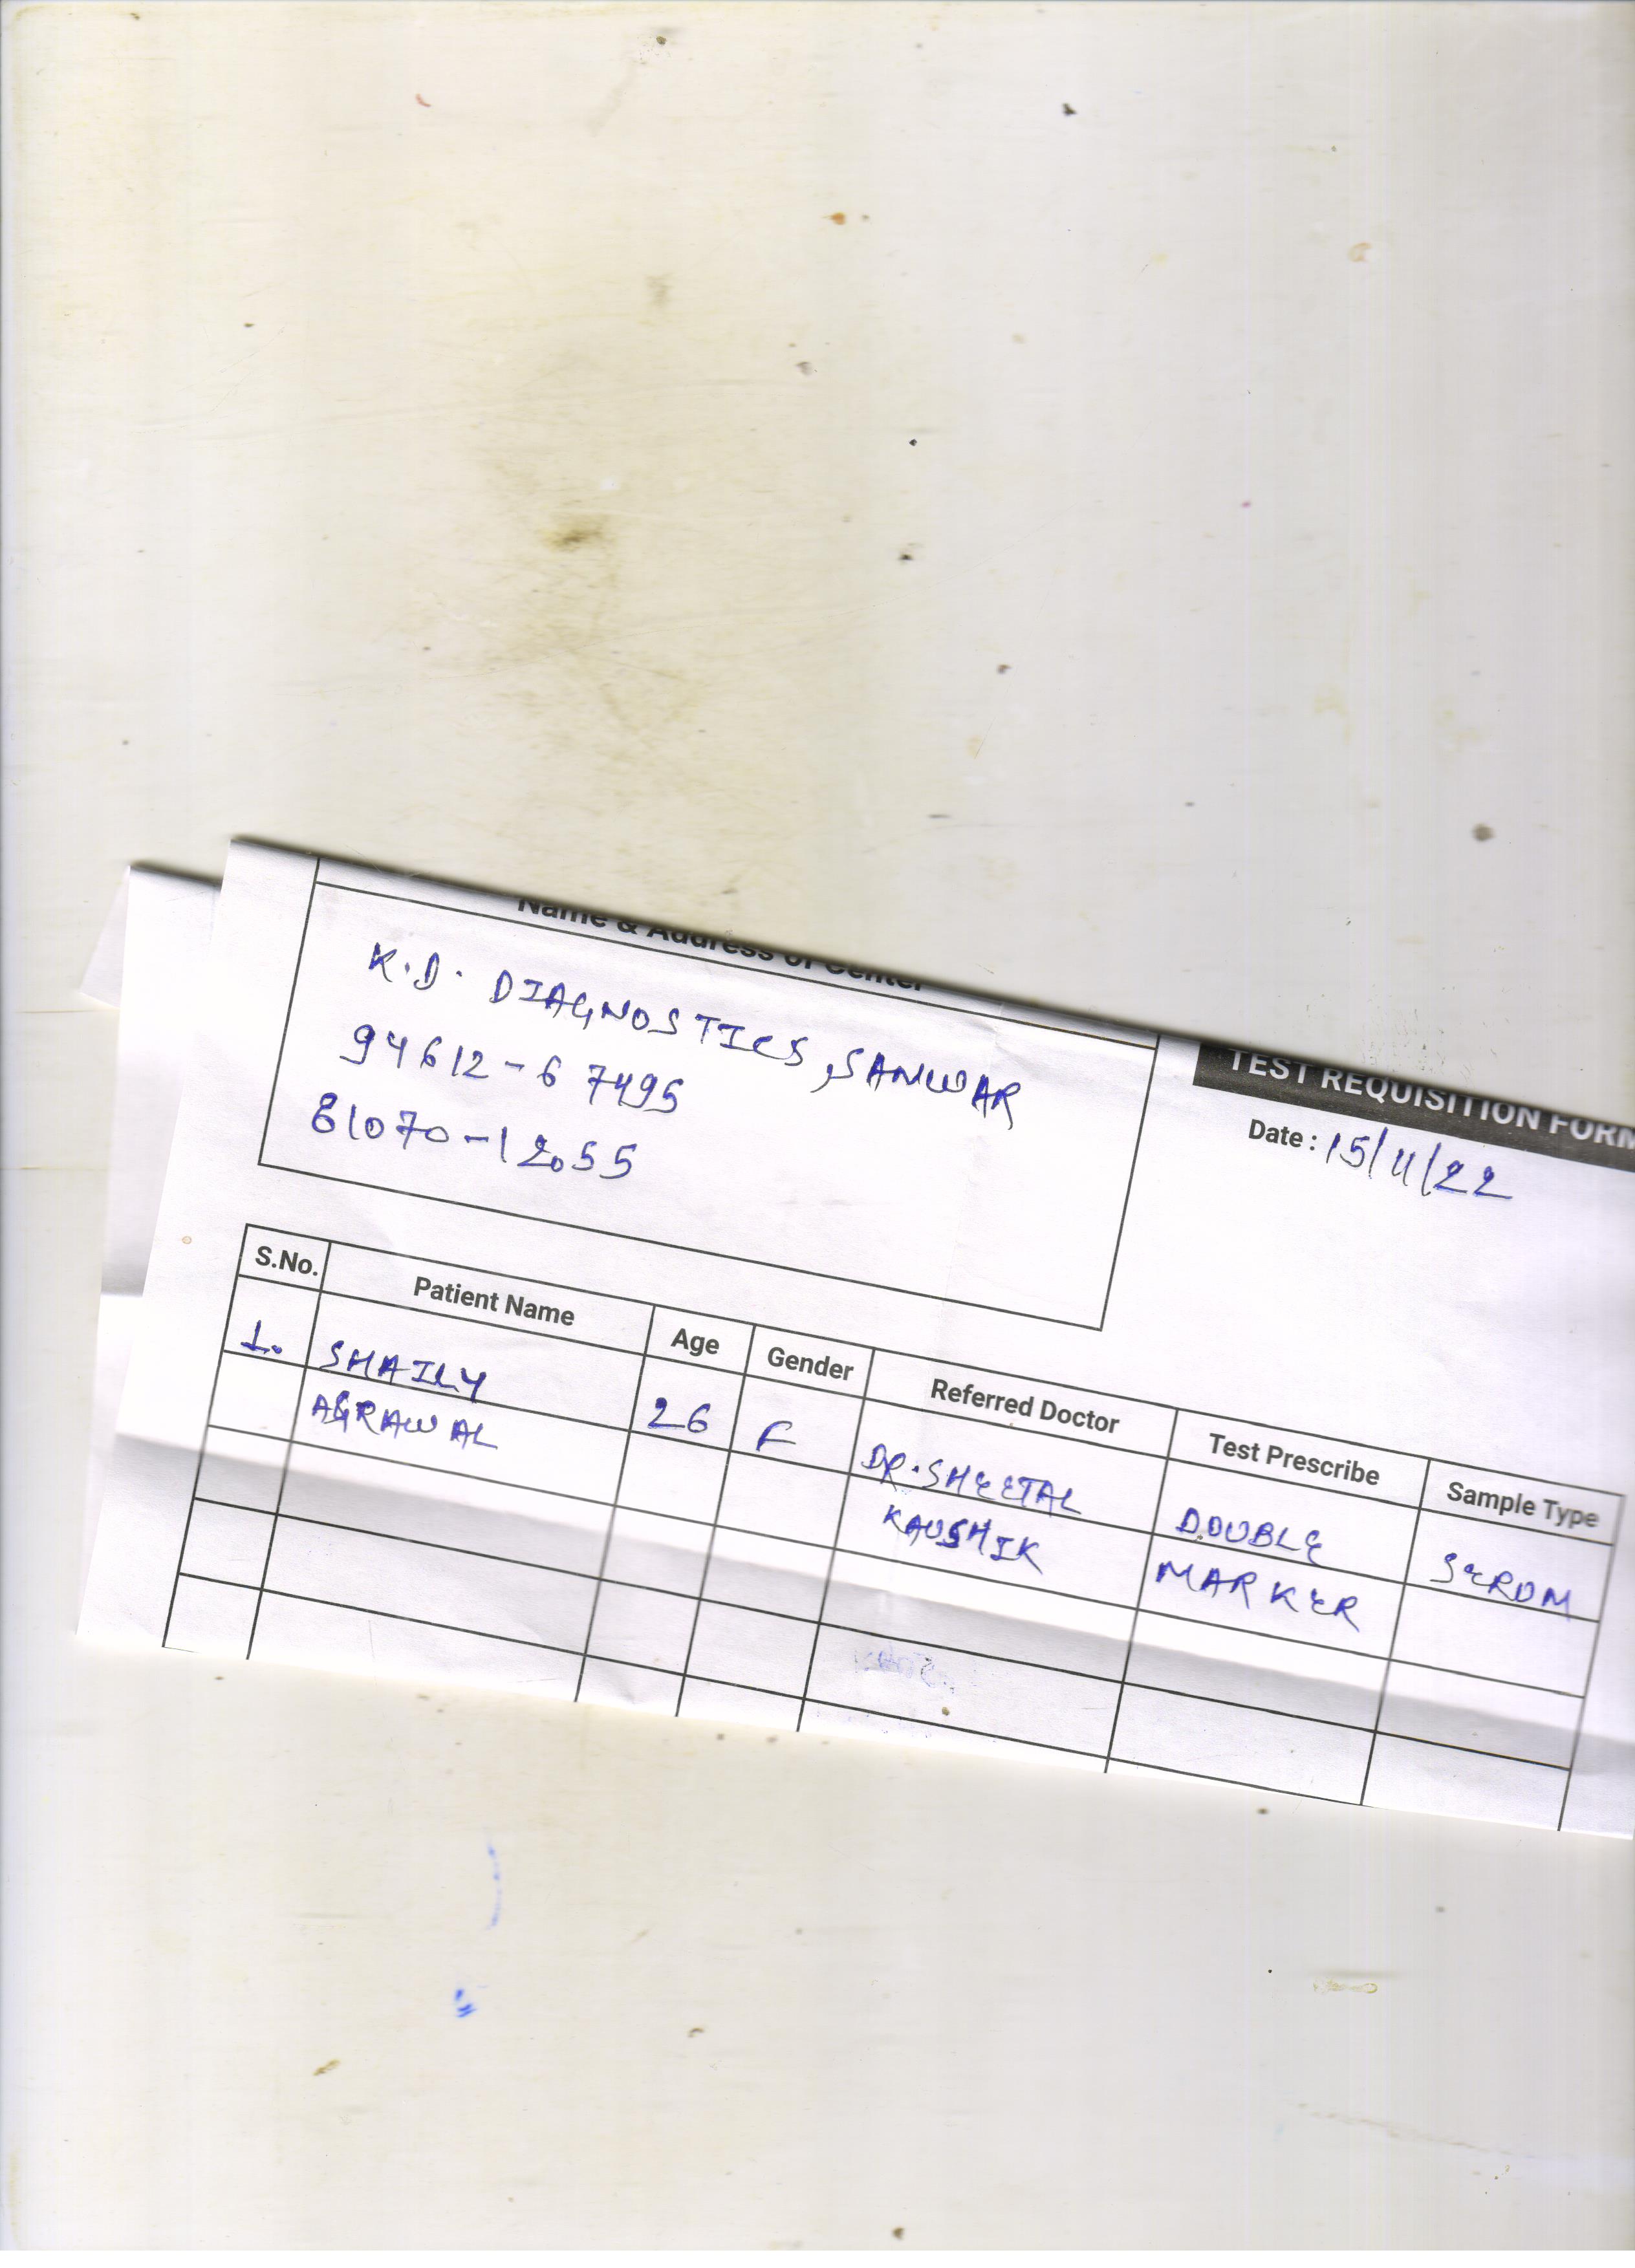 Name & Address of Center
K.D. DIAGNOSTICS, SANWAR
94612-67495
81070-12055
TEST REQUISITION FORM
Date : 15/11/22
S.No. Patient Name Age Gender Referred Doctor Test Prescribe Sample Type
1. SHAILY 26 F DR. SHEETAL DOUBLE SERUM
AGRAWAL KAUSHIK MARKER